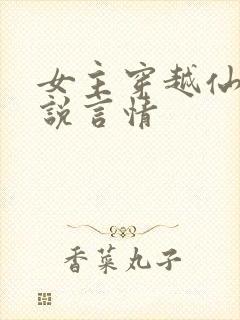 女主穿越仙
說言情
香菜丸子